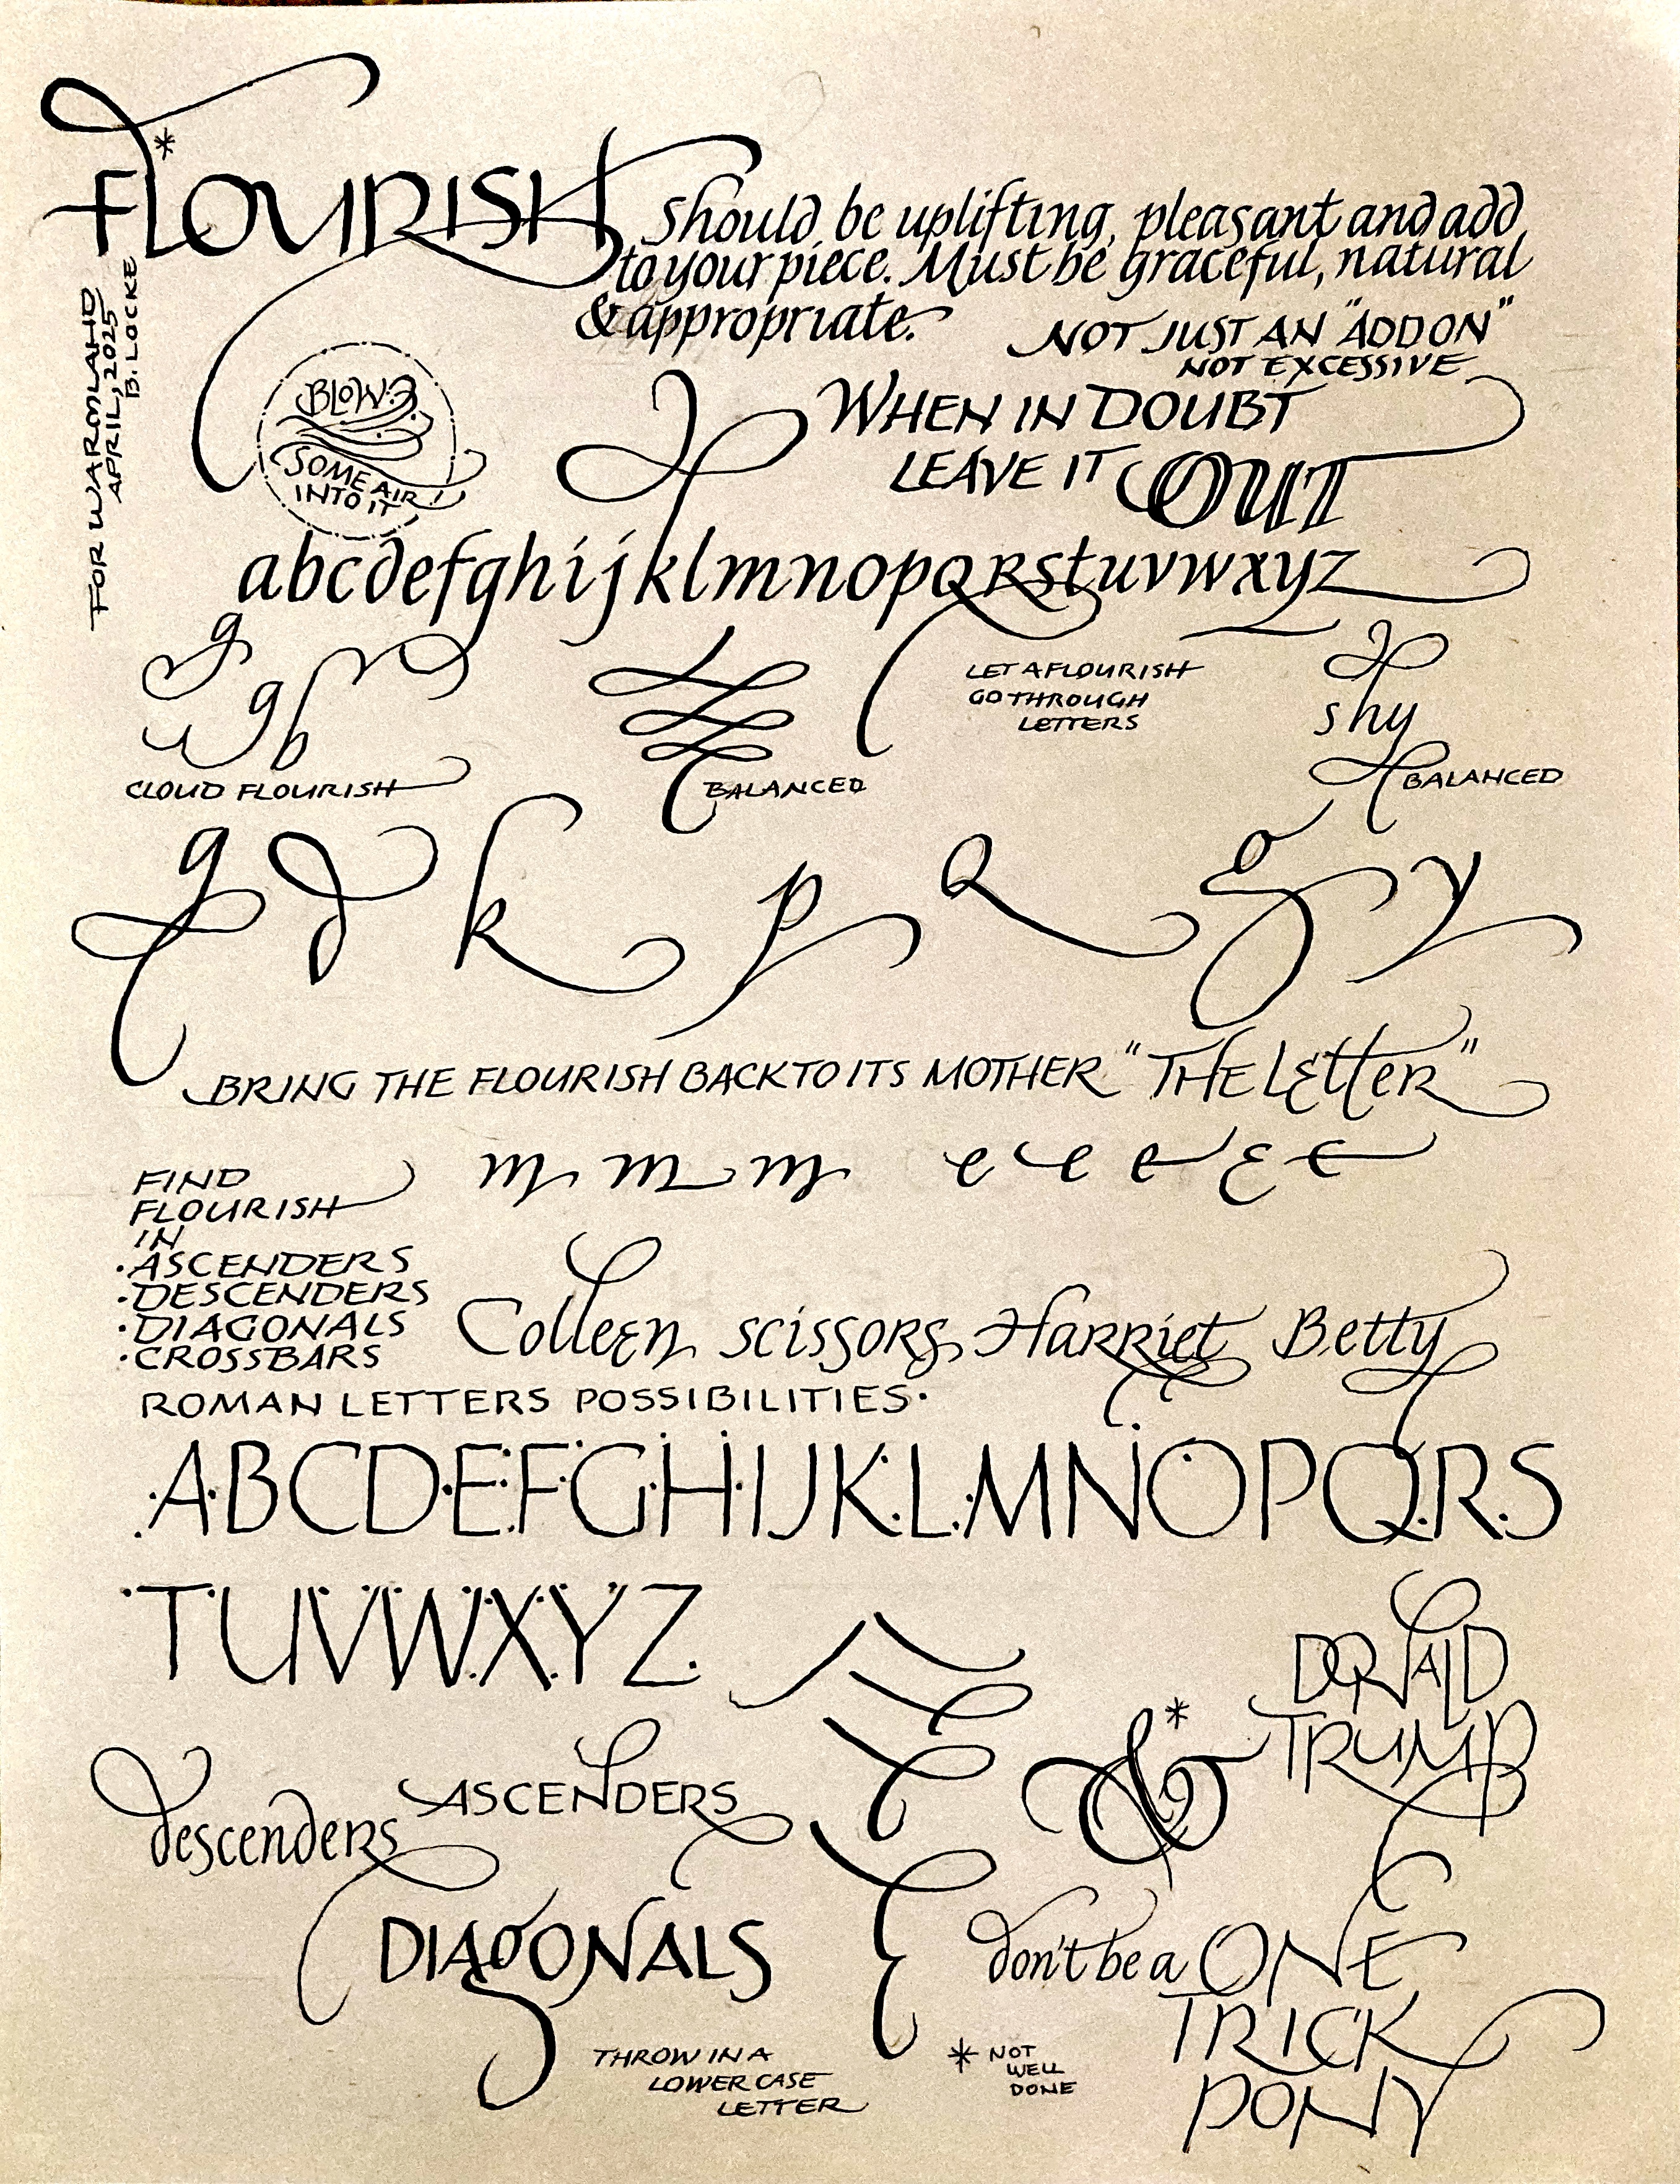 *
FLOURISH Should be uplifting, pleasant and add
to your piece. Must be graceful, natural
& appropriate.
NOT JUST AN "ADD ON"
NOT EXCESSIVE
FOR WARMLAHD
APRIL, 2025
B. LOCKE
BLOW
SOME AIR
INTO IT!
WHEN IN DOUBT
LEAVE IT OUT
abcdefghijklmnopqrstuvwxyz
g
g b
CLOUD FLOURISH
BALANCED
LET A FLOURISH
GO THROUGH
LETTERS
shy
BALANCED
g d k p Q g y
BRING THE FLOURISH BACK TO ITS MOTHER "THE LETTER"
m m m e e e e e
FIND
FLOURISH
IN
• ASCENDERS
• DESCENDERS
• DIAGONALS
• CROSSBARS
Colleen scissors Harriet Betty
ROMAN LETTERS POSSIBILITIES •
ABCDEFGHIJKLMNOPQRS
TUVWXYZ
DONALD
TRUMP
&*
descenders
ASCENDERS
DIAGONALS
THROW IN A
LOWER CASE
LETTER
* NOT
WELL
DONE
don't be a ONE
TRICK
PONY